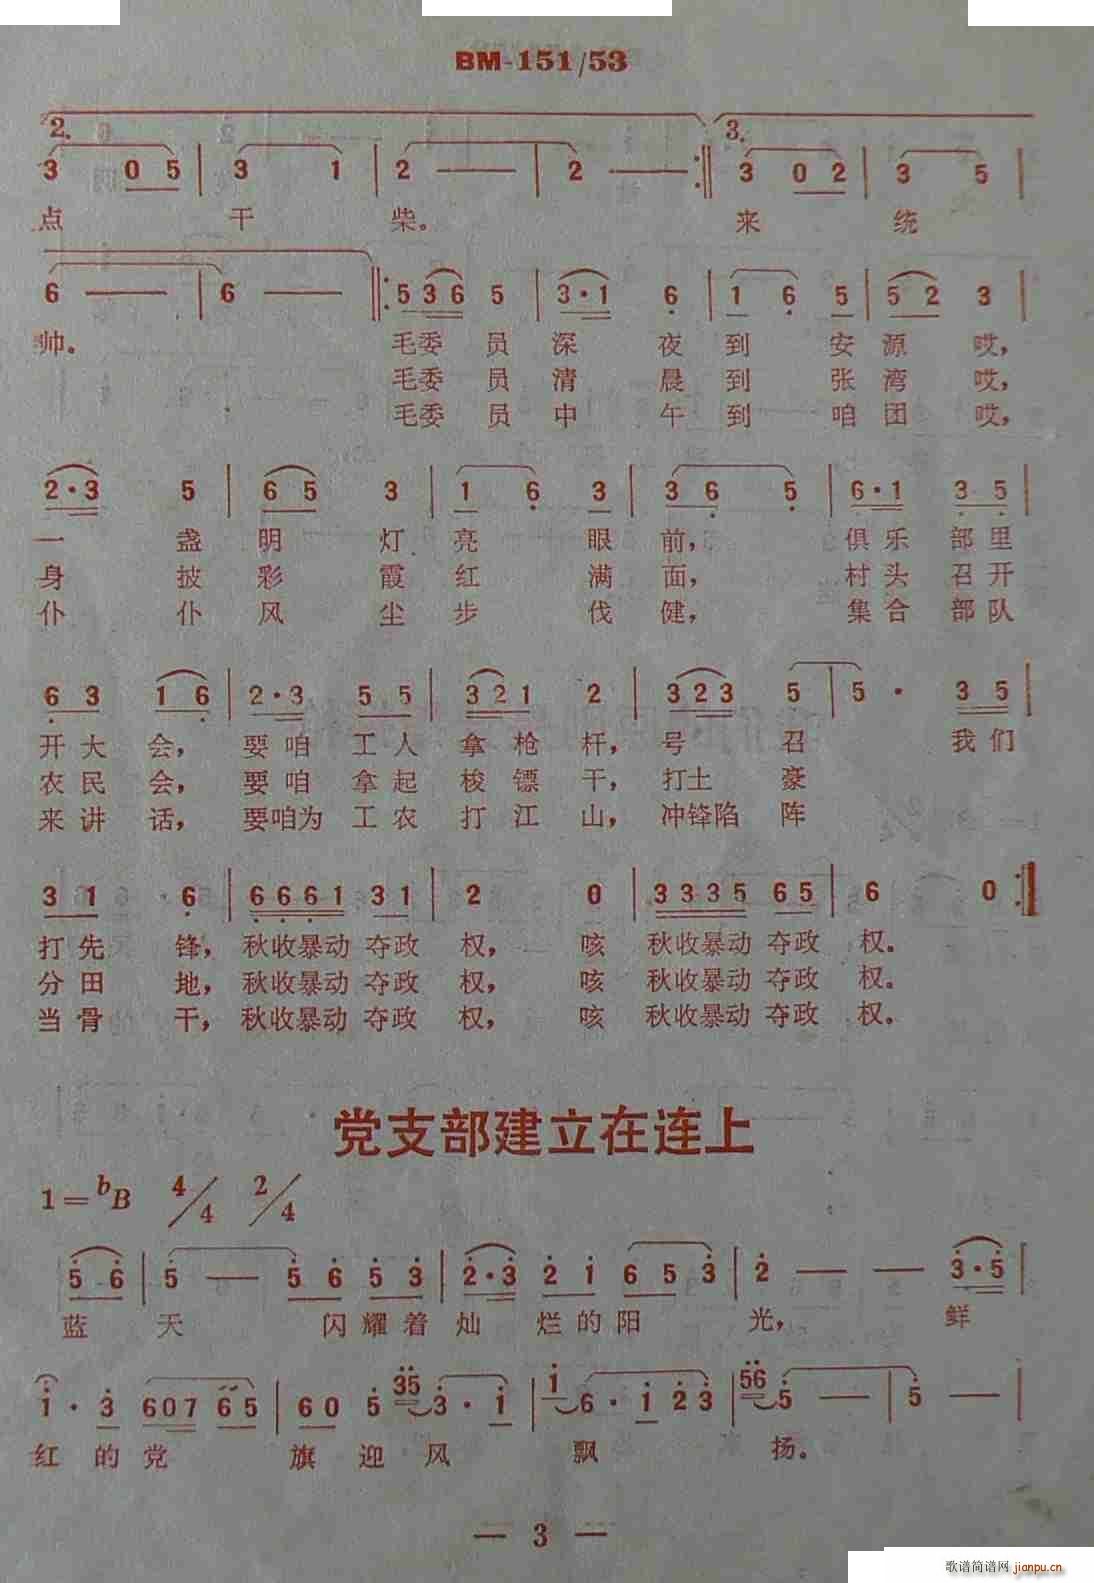 BM-151/53
2. 3.
3 0 5 | 3 1 | 2 — | 2 — :|| 3 0 2 | 3 5 |
点 干 柴。 来 统
6 — | 6 — :|| 5 3 6 5 | 3·1 6 | 1 6 5 | 5 2 3 |
帅。 毛委 员 深 夜 到 安 源 哎,
毛委 员 清 晨 到 张 湾 哎,
毛委 员 中 午 到 咱 团 哎,
2·3 5 | 6 5 3 | 1 6 3 | 3 6 5 | 6·1 3 5 |
一 盏 明 灯 亮 眼 前, 俱乐 部里
身 披 彩 霞 红 满 面, 村头 召开
仆 仆 风 尘 步 伐 健, 集合 部队
6 3 1 6 | 2·3 5 5 | 3 2 1 2 | 3 2 3 5 | 5 · 3 5 |
开大 会, 要咱 工人 拿枪 杆, 号 召 我们
农民 会, 要咱 拿起 梭镖 干, 打土 豪
来讲 话, 要咱为 工农 打江 山, 冲锋陷 阵
3 1 6 | 6 6 6 1 3 1 | 2 0 | 3 3 3 5 6 5 | 6 0 :||
打先 锋, 秋收暴动 夺政 权, 咳 秋收暴动 夺政 权。
分田 地, 秋收暴动 夺政 权, 咳 秋收暴动 夺政 权。
当骨 干, 秋收暴动 夺政 权, 咳 秋收暴动 夺政 权。
党支部建立在连上
1=bB 4/4 2/4
5 6 | 5 — 5 6 5 3 | 2·3 2 1 6 5 3 | 2 — — 3·5 |
蓝 天 闪耀着 灿 烂的阳 光, 鲜
1 · 3 6 0 7 6 5 | 6 0 5 35 3 · 1 | 1 6 · 1 2 3 | 56 5 — 5 — |
红 的 党 旗 迎 风 飘 扬。
— 3 —
歌谱简谱网 jianpu.cn